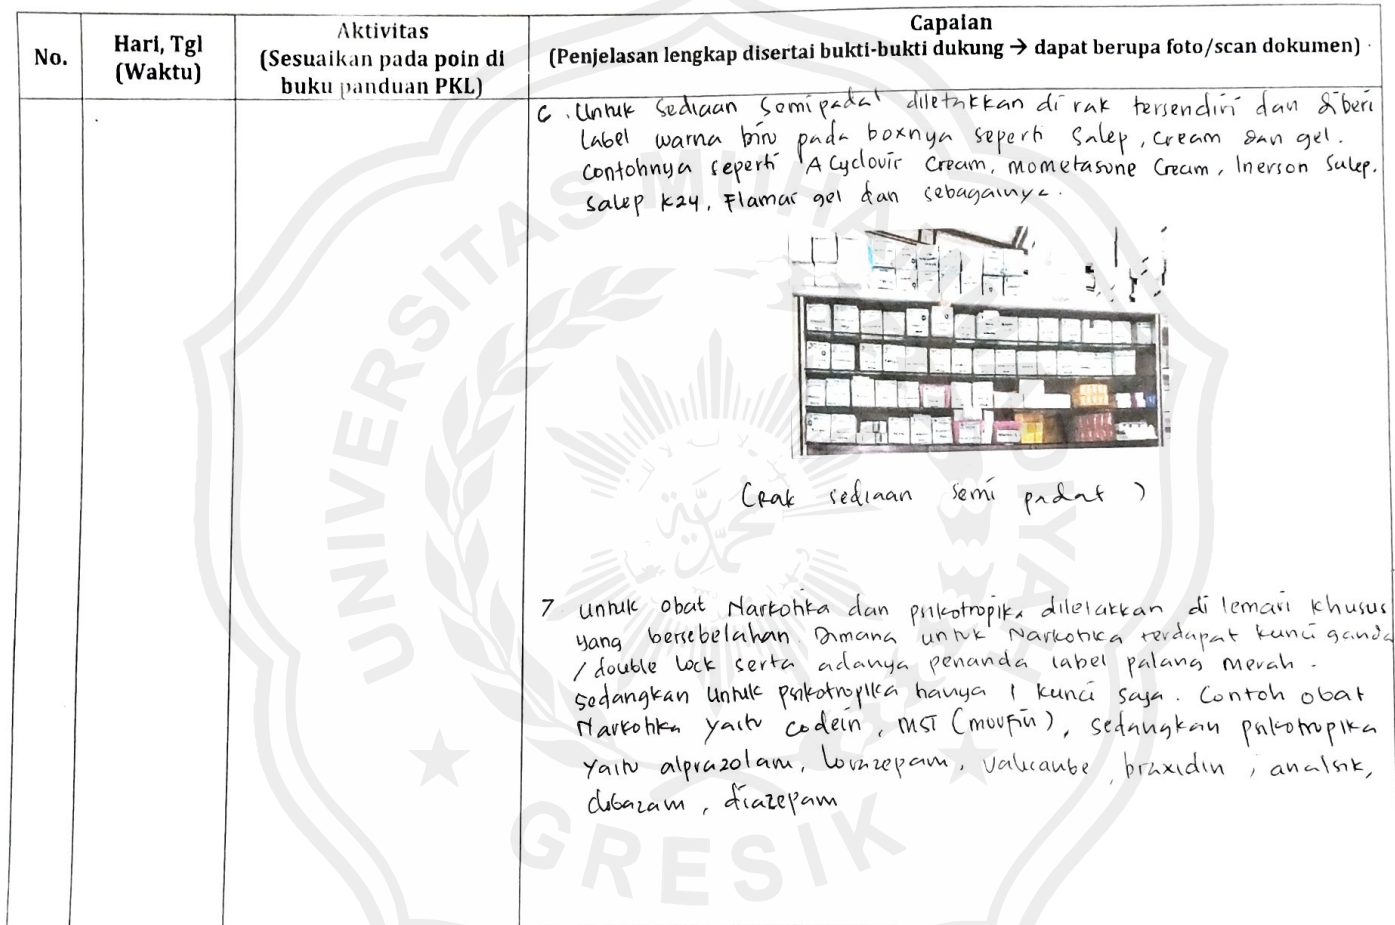 No.
Hari, Tgl
(Waktu)
Aktivitas
(Sesuaikan pada poin di
buku panduan PKL)
Capaian
(Penjelasan lengkap disertai bukti-bukti dukung → dapat berupa foto/scan dokumen)
Untuk Sediaan Semipadat diletakkan di rak tersendiri dan diberi
Label warna biru pada boxnya seperti Salep, cream dan gel.
Contohnya seperti Acyclovir Cream, mometasone Cream, Inerson Salep.
Salep K24, Flamar gel dan sebagainya.
(Rak sediaan semi padat)
7 untuk obat Narkotika dan psikotropika diletakkan di lemari khusus
yang bersebelahan. Dimana untuk Narkotika terdapat kunci ganda
/ double lock serta adanya penanda label palang merah.
Sedangkan untuk psikotropika hanya 1 kunci saja. Contoh obat
Narkotika yaitu codein, MST (morfin), sedangkan psikotropika
yaitu alprazolam, lorazepam, braxidin, analsik,
clobazam, diazepam
UNIVERSITAS MUHAMMADIYAH
GRESIK